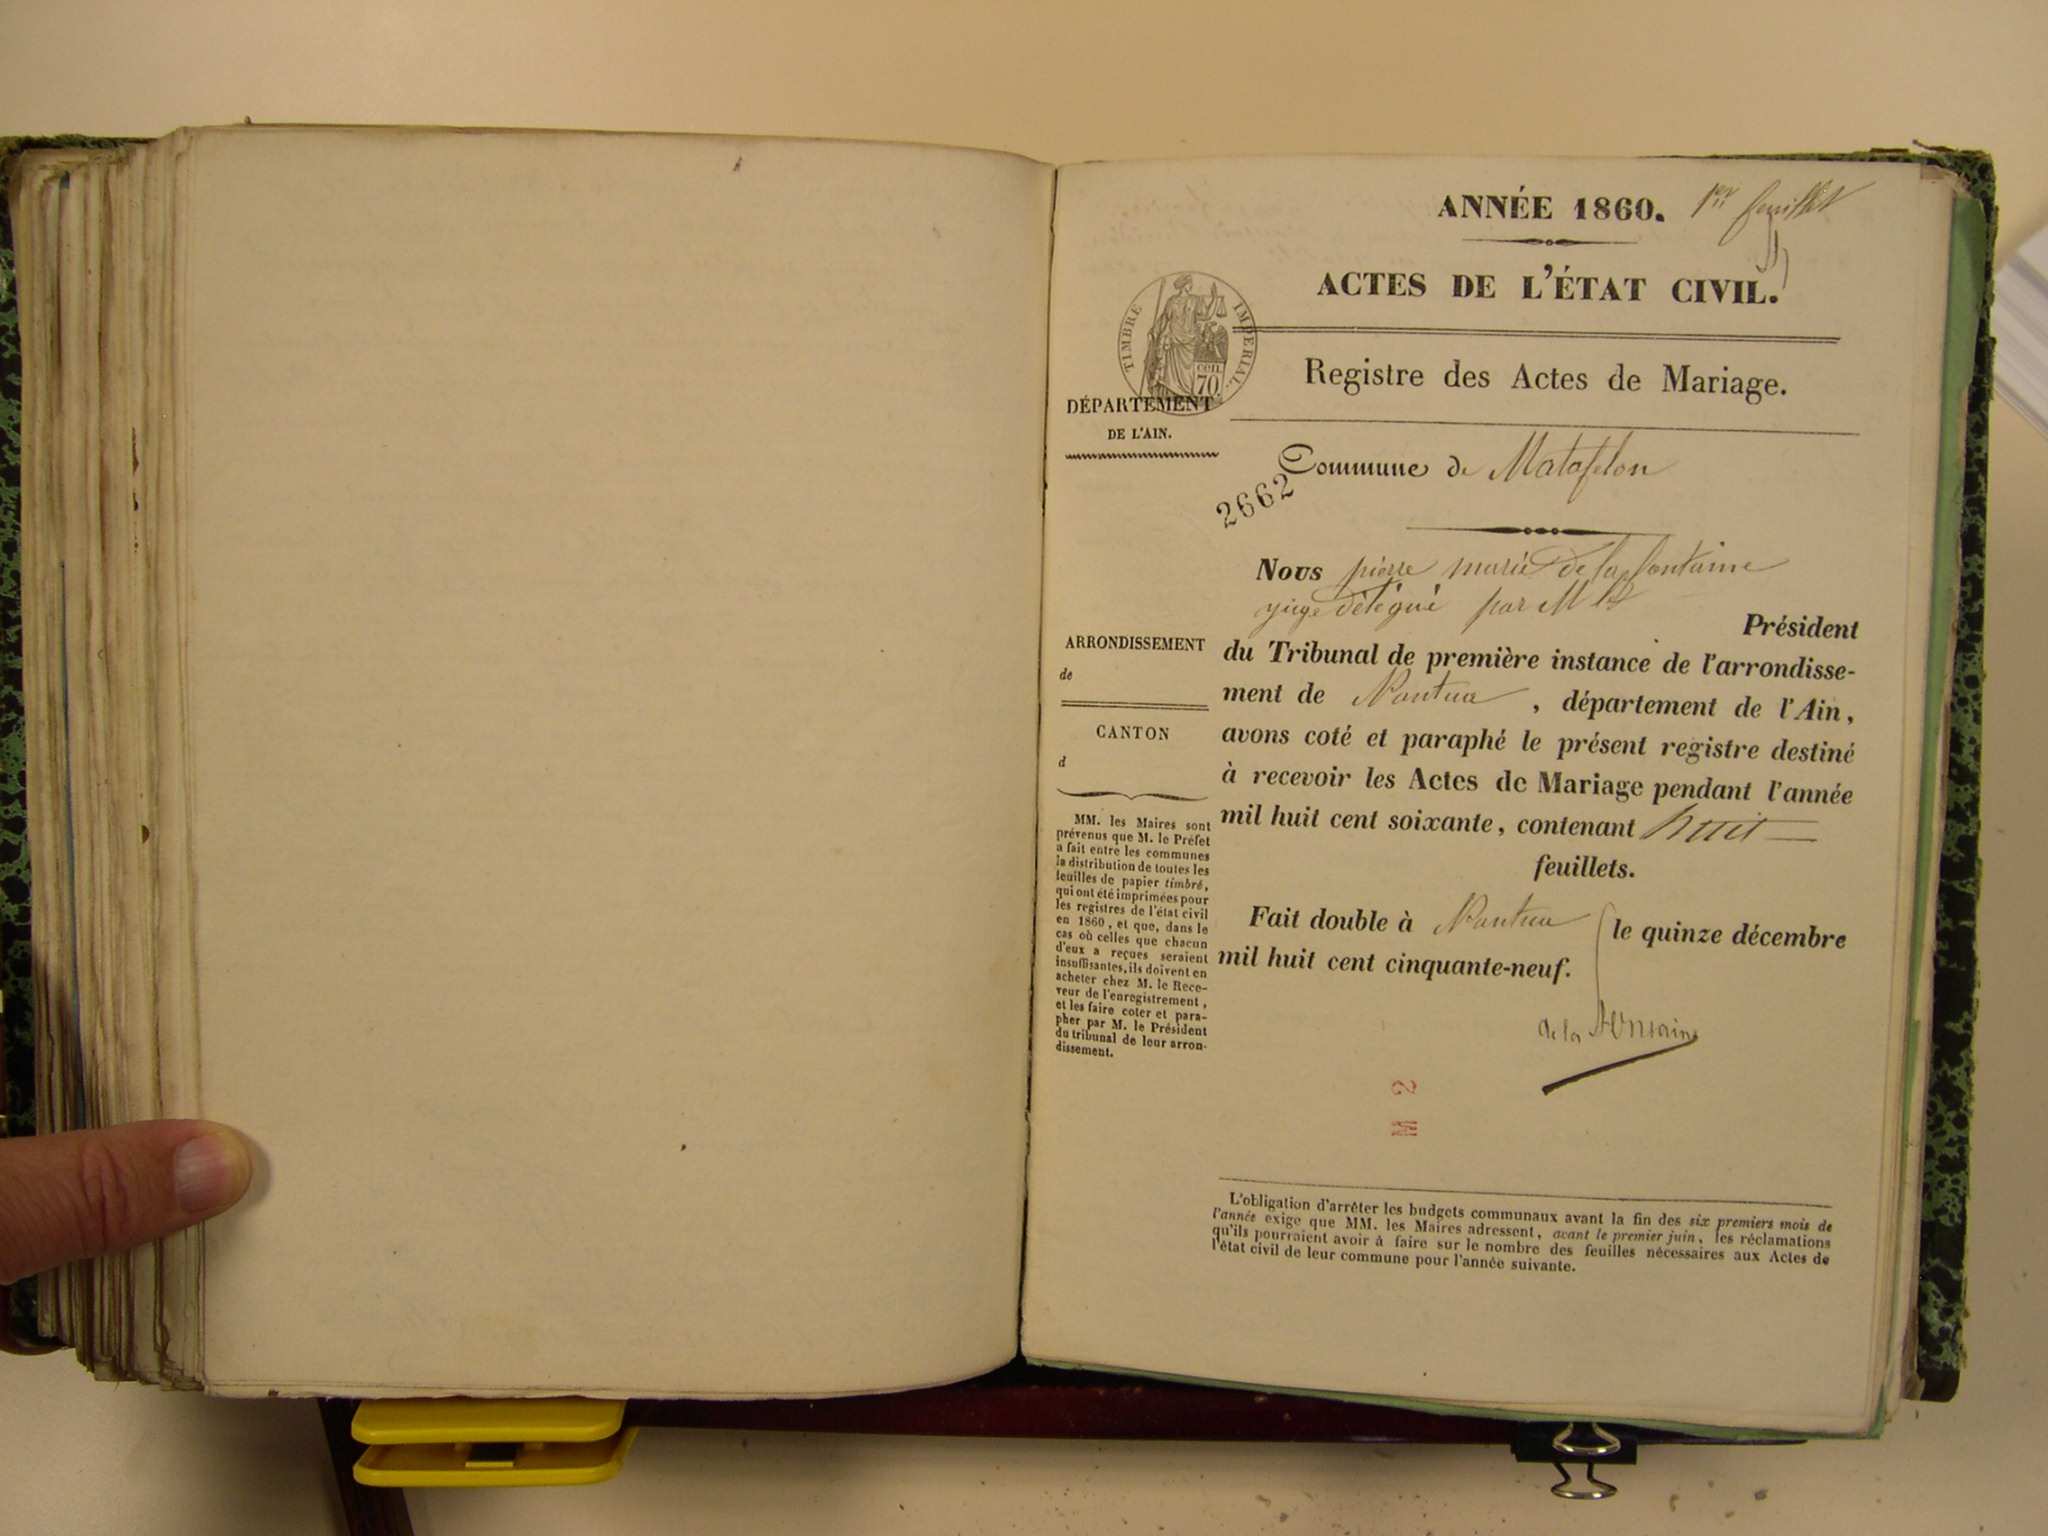 ANNÉE 1860. 1er feuillet
ACTES DE L'ÉTAT CIVIL.
TIMBRE IMPERIAL.
cen
70.
Registre des Actes de Mariage.
DÉPARTEMENT
DE L'AIN.
Commune de Matafelon
2662
Nous pierre marie De la fontaine
juge délégué par Mr le
Président
du Tribunal de première instance de l'arrondisse-
ment de Nantua, département de l'Ain,
avons coté et paraphé le présent registre destiné
à recevoir les Actes de Mariage pendant l'année
mil huit cent soixante, contenant huit
feuillets.
Fait double à Nantua le quinze décembre
mil huit cent cinquante-neuf.
de la Fontaine
M 2
ARRONDISSEMENT
de
CANTON
d
MM. les Maires sont
prévenus que M. le Préfet
a fait entre les communes
la distribution de toutes les
feuilles de papier timbré,
qui ont été imprimées pour
les registres de l'état civil
en 1860, et que, dans le
cas où celles que chacun
d'eux a reçues seraient
insuffisantes, ils doivent en
acheter chez M. le Rece-
veur de l'enregistrement,
et les faire coter et para-
pher par M. le Président
du tribunal de leur arron-
dissement.
L'obligation d'arrêter les budgets communaux avant la fin des six premiers mois de
l'année exige que MM. les Maires adressent, avant le premier juin, les réclamations
qu'ils pourraient avoir à faire sur le nombre des feuilles nécessaires aux Actes de
l'état civil de leur commune pour l'année suivante.